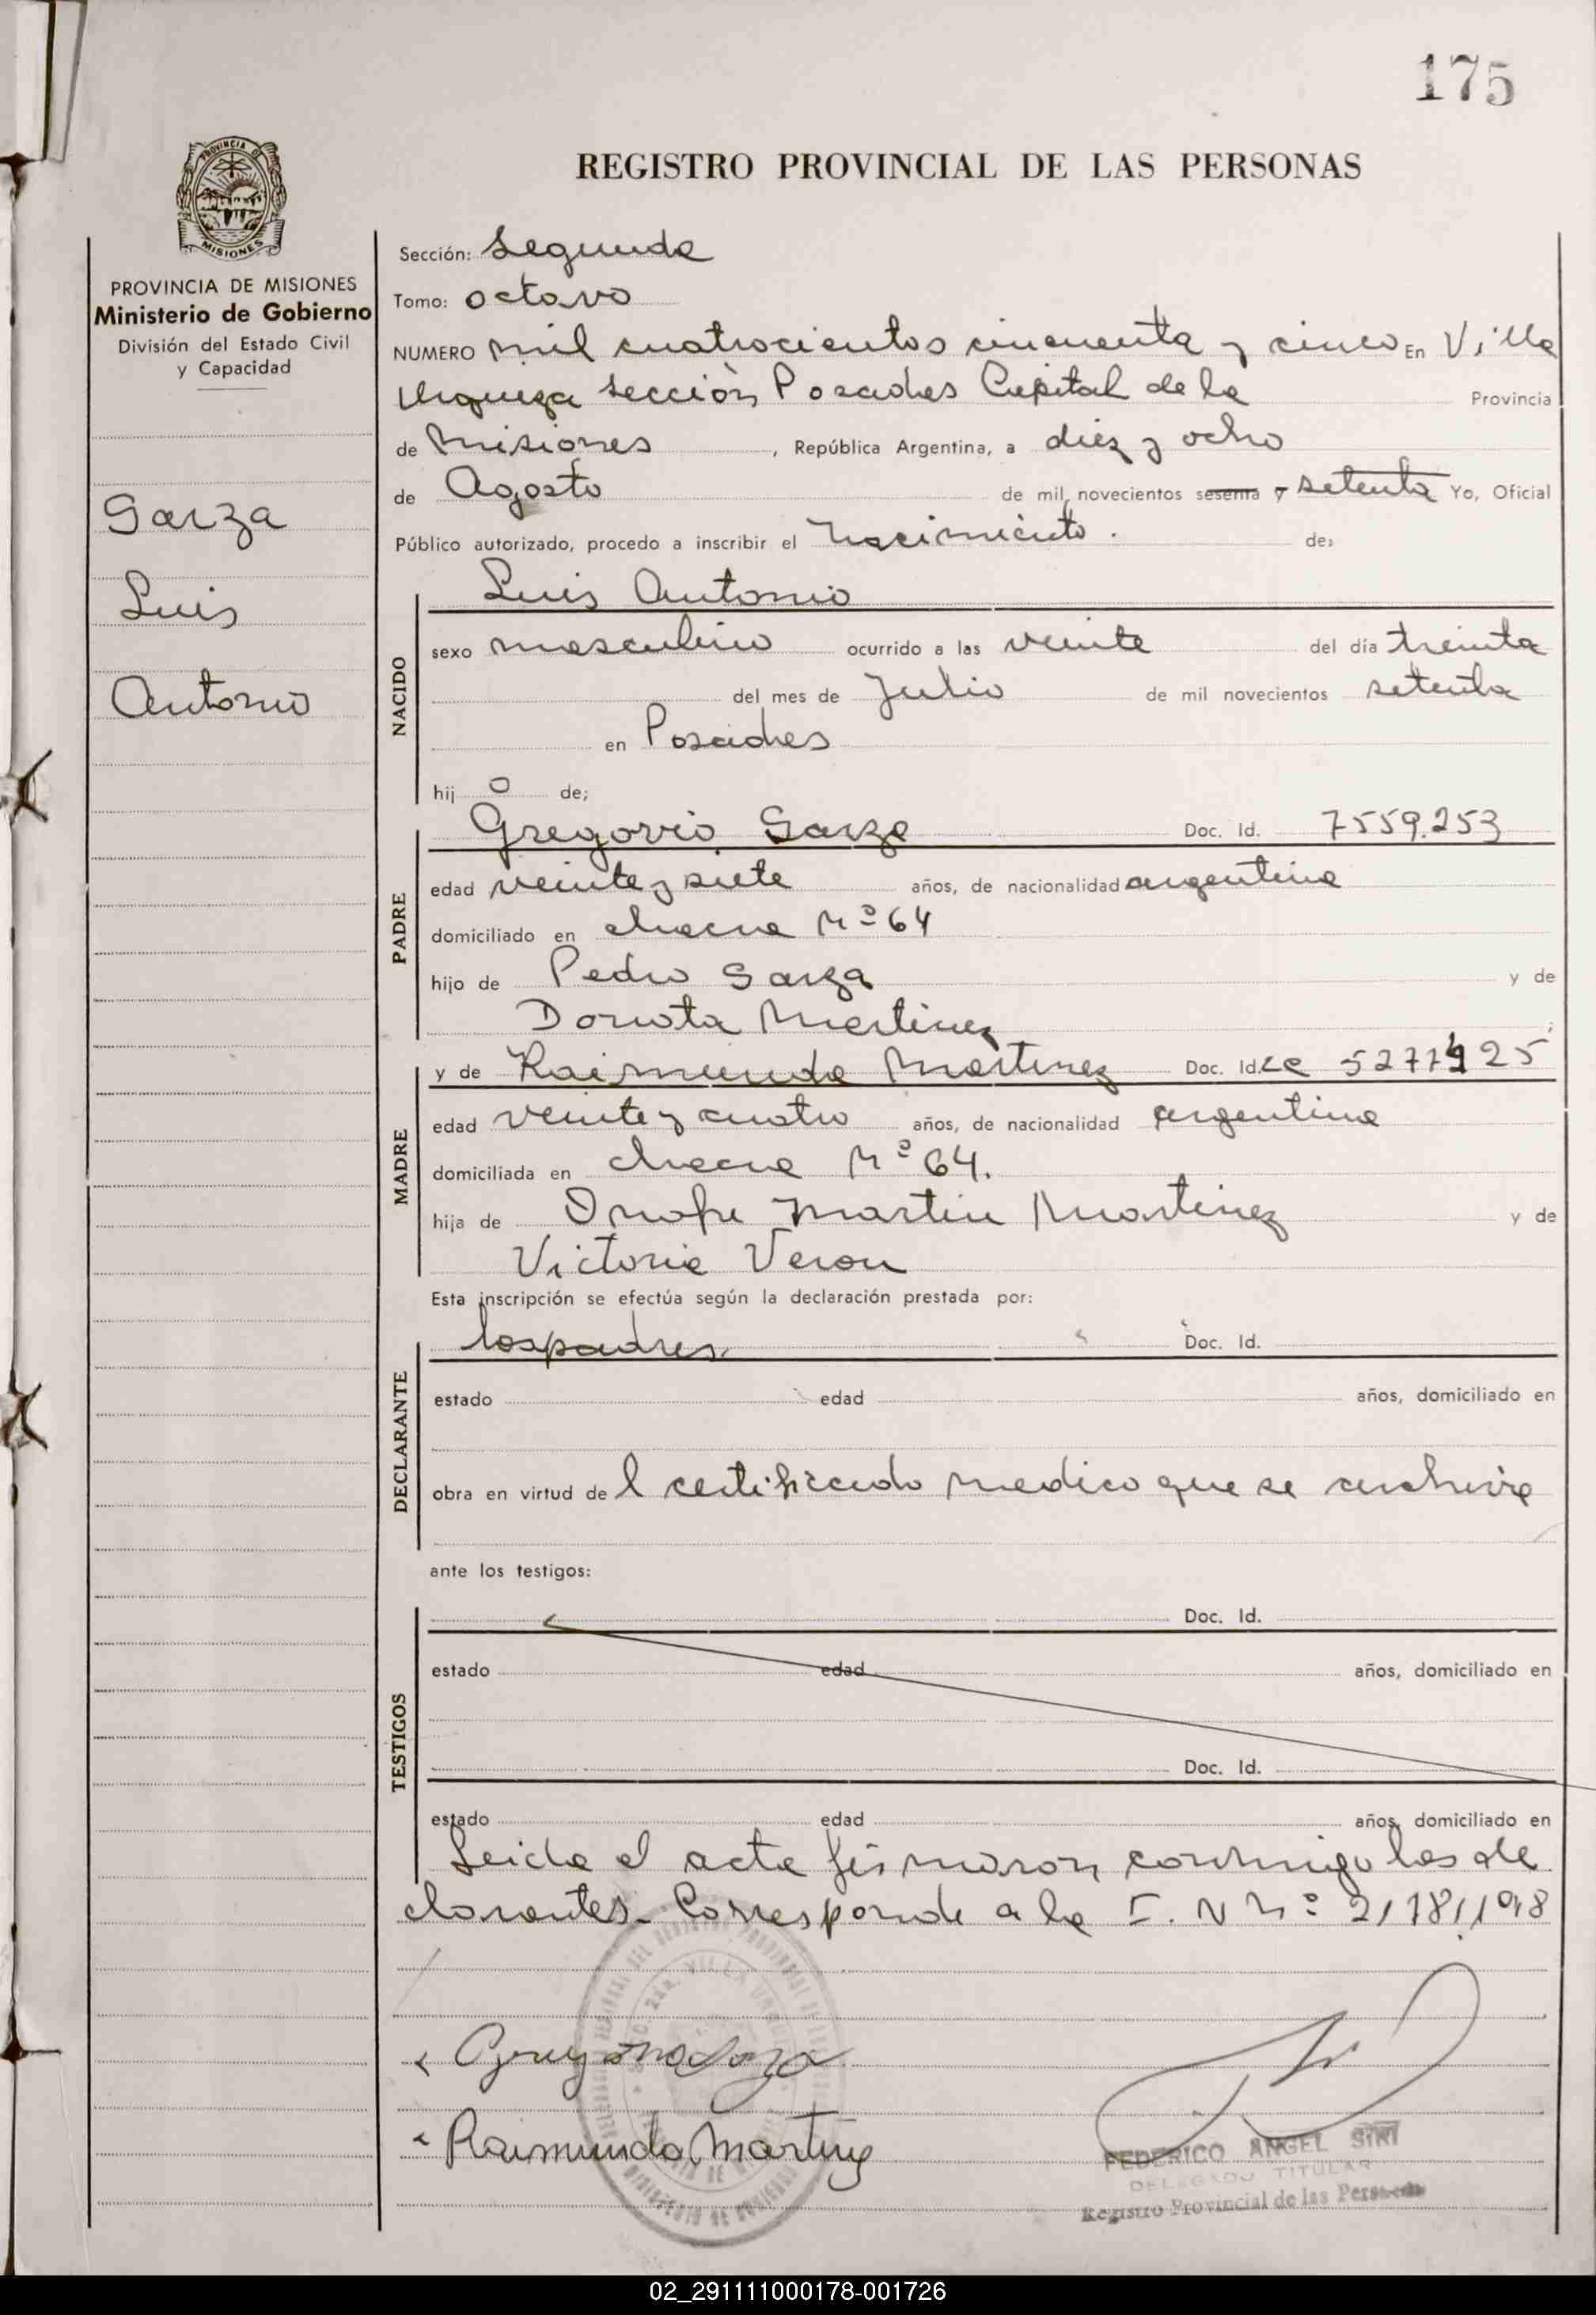 175
REGISTRO PROVINCIAL DE LAS PERSONAS
PROVINCIA DE
MISIONES
PROVINCIA DE MISIONES
Ministerio de Gobierno
División del Estado Civil
y Capacidad
Garza
Luis
Antonio
Sección: Segunda
Tomo: octavo
NUMERO mil cuatrocientos cincuenta y cinco En Villa
Urquiza sección Posadas Capital de la Provincia
de Misiones, República Argentina, a diez y ocho
de Agosto de mil novecientos sesenta y setenta Yo, Oficial
Público autorizado, procedo a inscribir el nacimiento. de:
Luis Antonio
NACIDO
sexo masculino ocurrido a las veinte del día treinta
del mes de Julio de mil novecientos setenta
en Posadas
hij o de;
Gregorio Garza Doc. Id. 7559.253
PADRE
edad veinte y siete años, de nacionalidad argentina
domiciliado en chacra Nº 64
hijo de Pedro Garza y de
Martinez
y de Raimunda Martinez Doc. Id. LC
MADRE
edad veinte y cuatro años, de nacionalidad argentina
domiciliada en chacra Nº 64.
hija de Onofre Martin Martinez y de
Victoria Veron
Esta inscripción se efectúa según la declaración prestada por:
los padres. Doc. Id.
DECLARANTE
estado edad años, domiciliado en
obra en virtud de l certificado medico que se archiva
ante los testigos:
TESTIGOS
Doc. Id.
estado edad años, domiciliado en
Doc. Id.
estado edad años, domiciliado en
Leida el acta firmaron conmigo los de
clarantes. Corresponde a la I. N Nº
Raimunda Martinez
FEDERICO ANGEL SIRI
DELEGADO TITULAR
Registro Provincial de las Personas
02_291111000178-001726